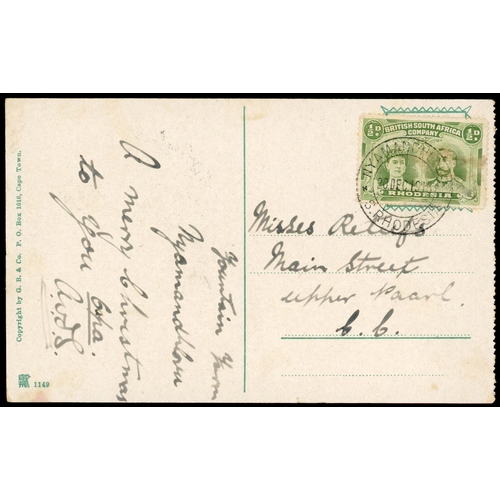 Copyright by G. B. & Co. P. O. Box 1016, Cape Town.
1149
Fountain Farm
Nyamandhlovu
A merry Christmas
to you
A.D.S.
½D.
BRITISH SOUTH AFRICA
COMPANY
½D.
RHODESIA
NYAMAND
DEC
S. RHODESIA
Misses Reliefs
Main Street
Upper Paarl.
C.C.